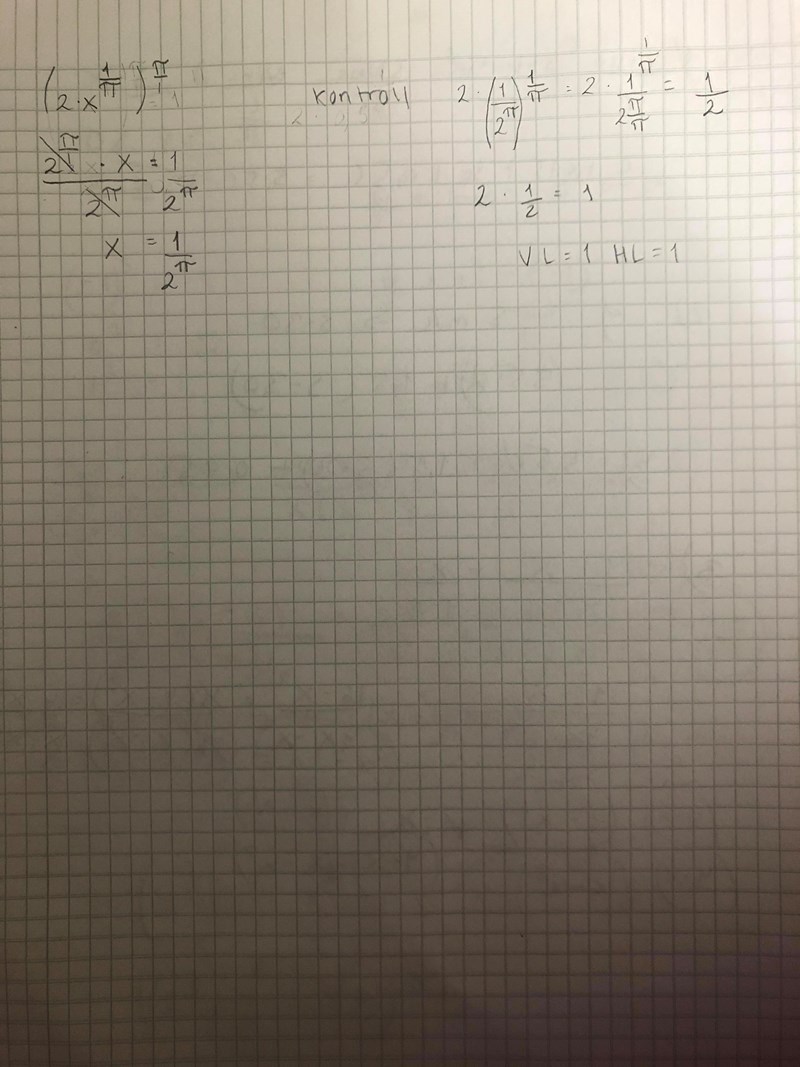 (2·x^(1/π))^(π/1) = 1
(2^(π/1) · x)/2^π = 1/2^π
x = 1/2^π
Kontroll 2·(1/2^π)^(1/π) = 2 · 1^(1/π)/2^(π/π) = 1/2
2 · 1/2 = 1
VL = 1 HL = 1